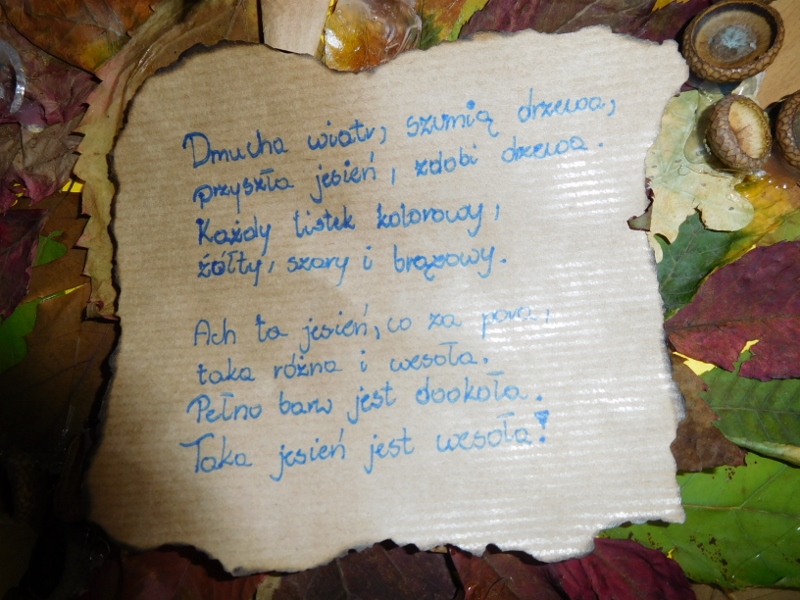 Dmucha wiatr, szumią drzewa,
przyszła jesień, zdobi drzewa.
Każdy listek kolorowy,
żółty, szary i brązowy.
Ach ta jesień, co za pora,
taka różna i wesoła.
Pełno barw jest dookoła.
Taka jesień jest wesoła!